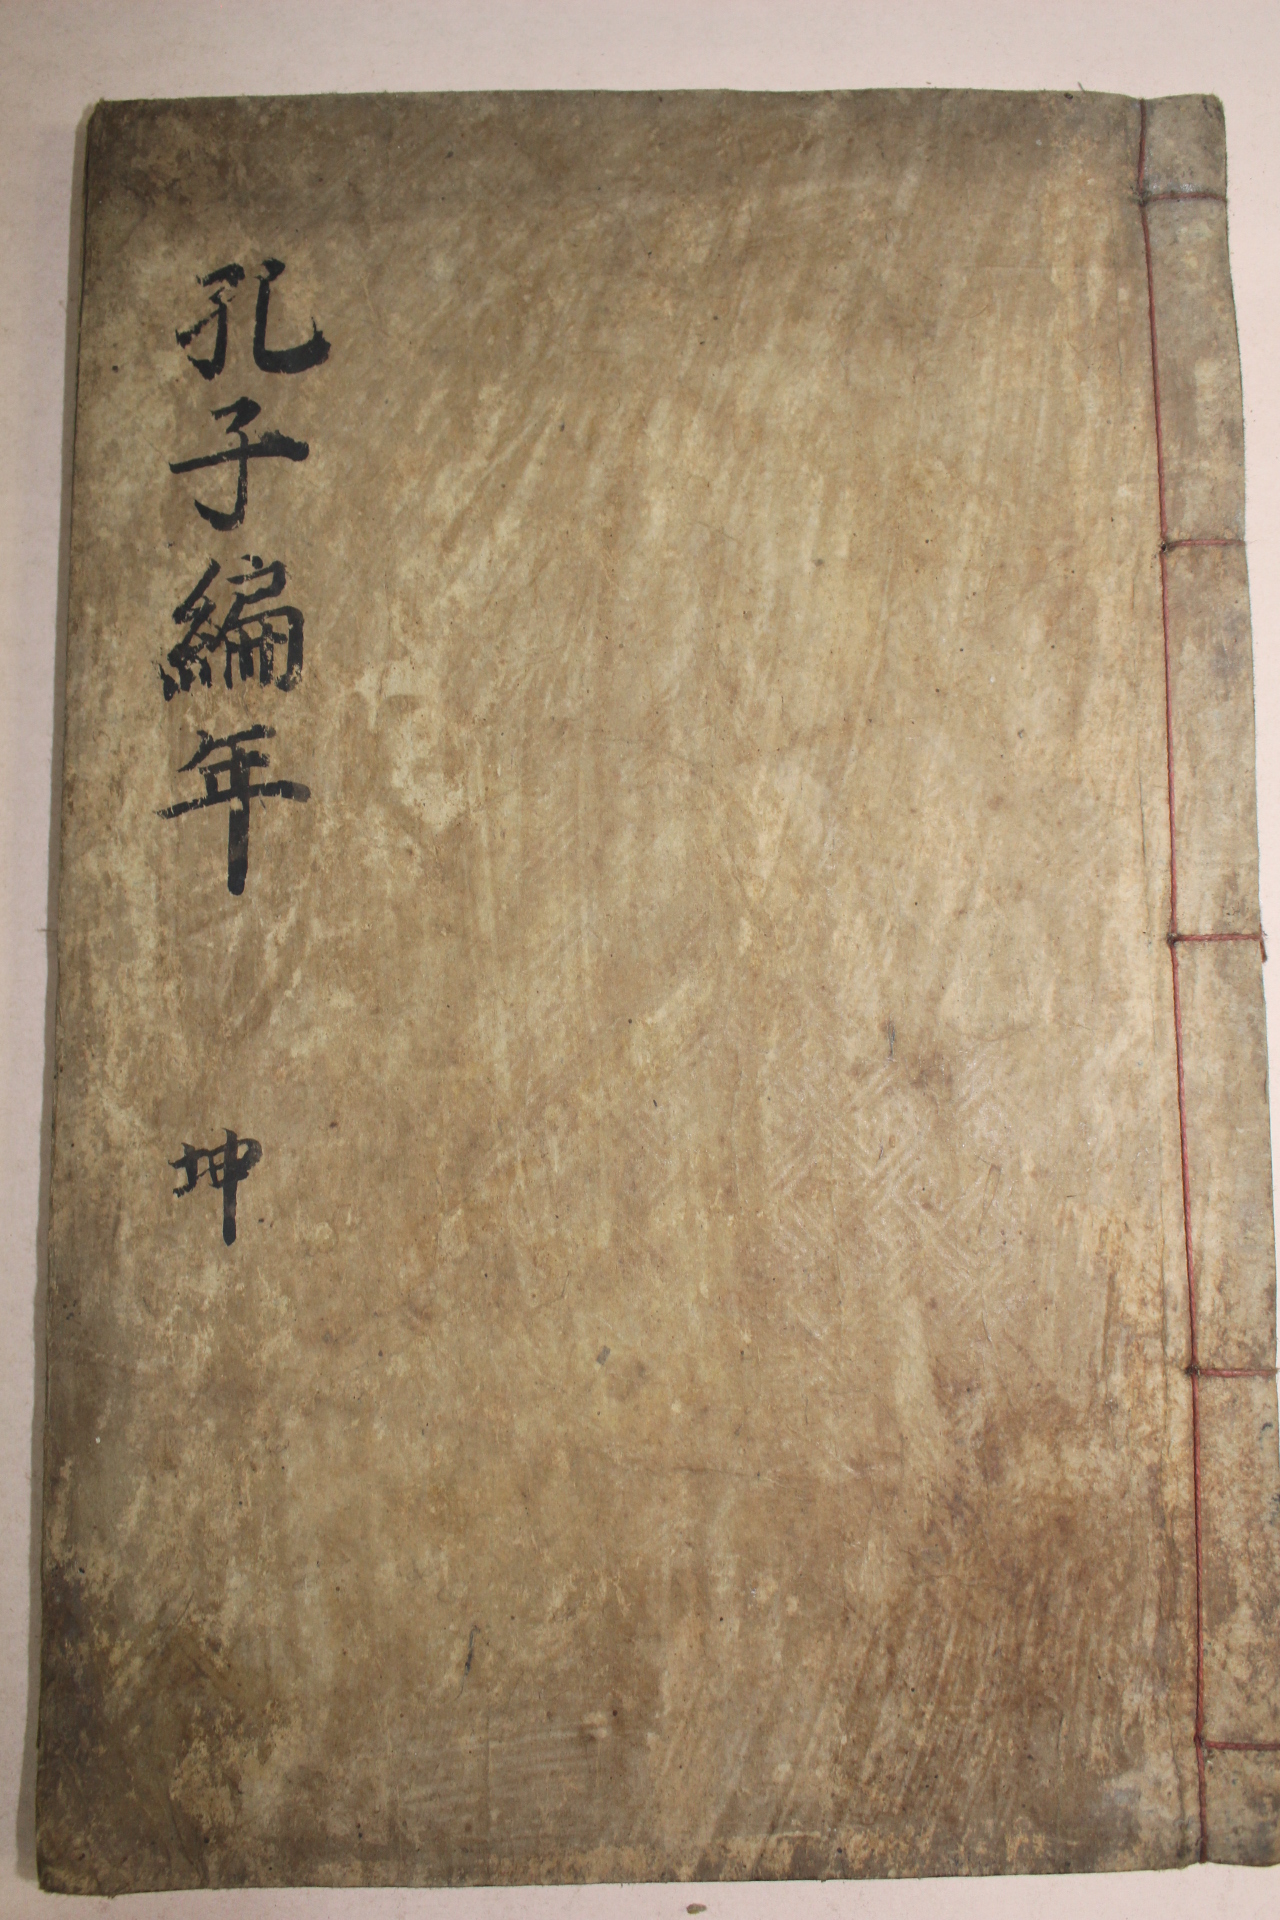 孔子編年
坤